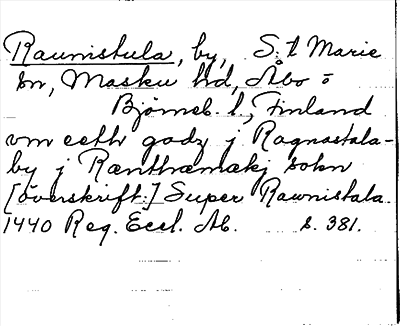 Raunistula, by, S:t Marie
sn, Masku hd, Åbo o
Björneb. l., Finland
vm eeth godz j Ragnastala-
by j Rænthæmækj sokn
[överskrift:] Super Rawnistala.
1440 Reg. Eccl. Ab. s. 381.